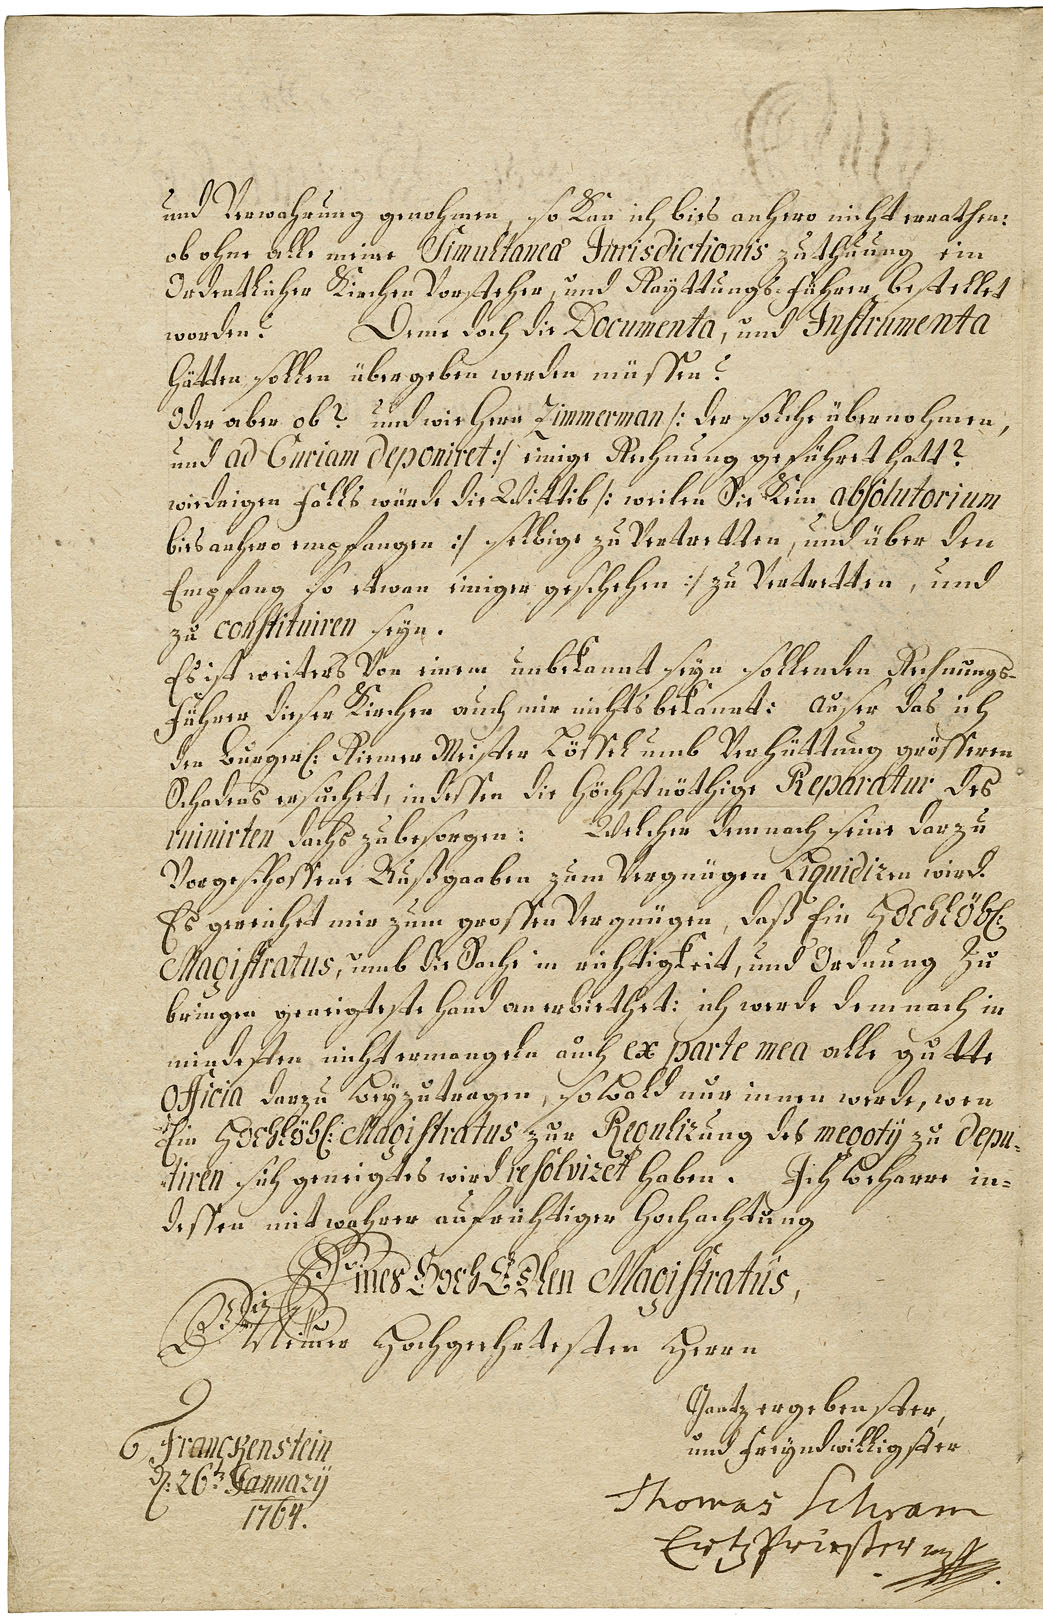 und Verwahrung genohmen, so Kan ich bies anhero nicht errathen:
ob ohne alle meine Simultanea Jurisdictionis zuthuung ein
Ordentlicher Kirchen Vorsteher, und Rayttungs-Führer bestellet
worden? Deme doch die Documenta, und Instrumenta
hätten sollen übergeben werden müssen?
Oder aber ob? und wie Herr Zimmerman /: der solche übernohmen,
und ad Curiam deponiret :/ einige Rechnung geführet hatt?
wiedrigen Falls würde die Wittib /: weilen Sie Kein absolutorium
bies anhero empfangen :/ selbige zu Vertretten, und über den
Empfang so etwan einiger geschehen :/ zu Vertretten, und
zu constituiren seyn.
Es ist weiters Von einem unbekannt seyn sollenden Rechnungs-
Führer dieser Kirchen auch mir nichts bekannt: auser das ich
den Burgerl: Riemer Meister Lössel umb Verhüttung grösseren
Schadens ersuchet, indessen die höchstnöthige Reparatur des
ruinirten dachs zubesorgen: Welcher demnach seine darzu
Vorgeschossene Außgaaben zum Vergnügen Liquidiren wird.
Es gereichet mir zum grossen Vergnügen, daß Ein Hochlöbl:
Magistratus, umb die Sache in richtigkeit, und Ordnung Zu
bringen geneigteste hand anerbiethet: ich werde demnach in
mindesten nicht ermangeln auch ex parte mea alle gutte
Officia darzu beyzutragen, so bald nur innen werde, wen
Ein Hochlöbl: Magistratus zur Regulirung des negotÿ zu depu-
tiren sich geneigtes wird resolviret haben. Ich beharre in=
dessen mit wahrer aufrichtiger Hochachtung
Eines HochEdlen Magistratus,
Meiner Hochgeehrtesten Herrn
Gantz ergebenster,
und Freyndwilligster
Franckenstein
d: 26t Januarÿ
1764.
Thomas Schram
ErtzPriester mp